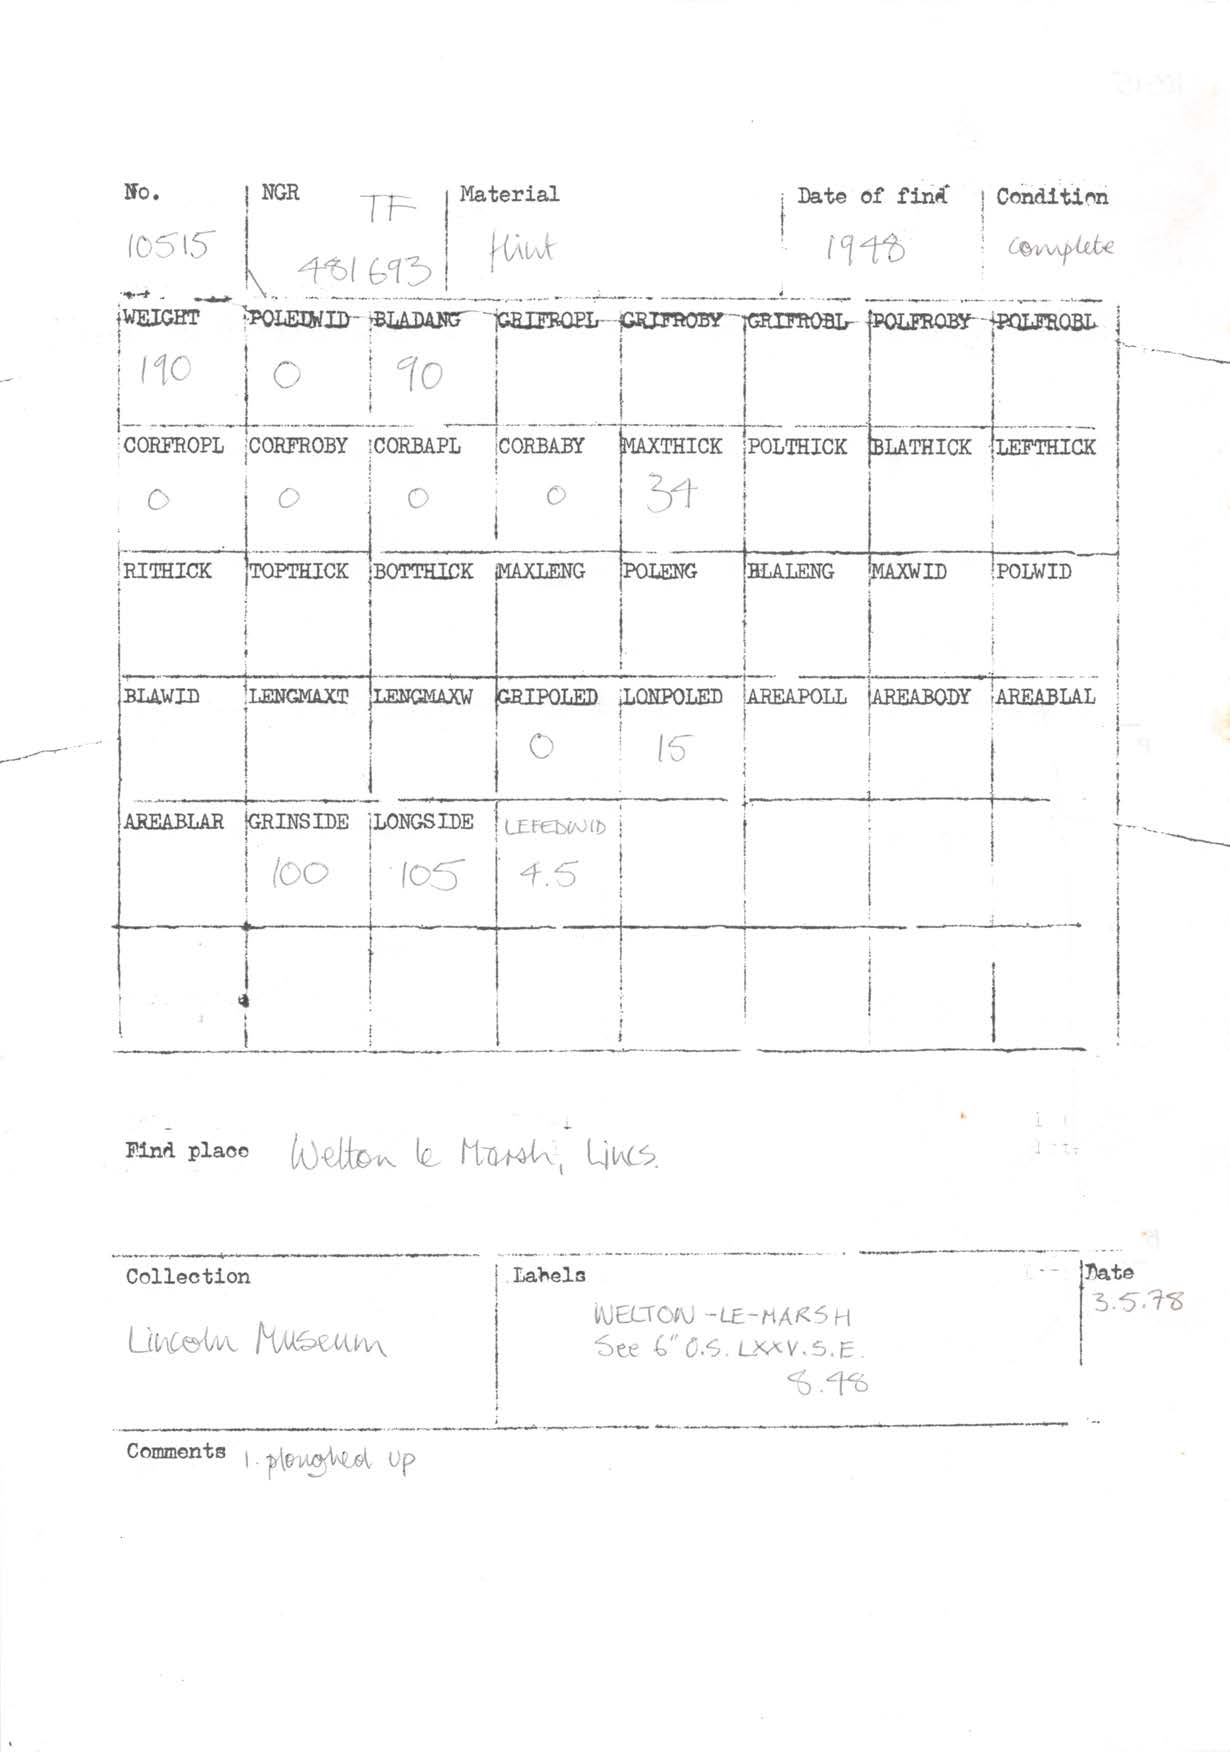 No. NGR Material Date of find Condition
TF
10515 481693 flint 1948 complete
WEIGHT POLEDWID BLADANG GRIFROPL GRIFROBY GRIFROBL POLFROBY POLFROBL
190 0 90
CORFROPL CORFROBY CORBAPL CORBABY MAXTHICK POLTHICK BLATHICK LEFTHICK
0 0 0 0 34
RITHICK TOPTHICK BOTTHICK MAXLENG POLENG BLALENG MAXWID POLWID
BLAWID LENGMAXT LENGMAXW GRIPOLED LONPOLED AREAPOLL AREABODY AREABLAL
0 15
AREABLAR GRINSIDE LONGSIDE LEFEDWID
100 105 4.5
Find place Welton le Marsh, Lincs.
Collection
Lincoln Museum
Labels
WELTON-LE-MARSH
See 6" O.S. LXXV.S.E.
8.48
Date
3.5.78
Comments 1. ploughed up